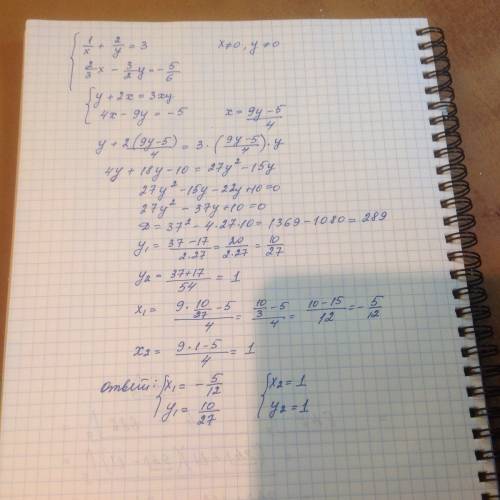 { 1/x + 2/y = 3      x≠0, y≠0
{ 2/3 x - 3/2 y = -5/6
{ y + 2x = 3xy
{ 4x - 9y = -5      x = (9y-5)/4
y + 2(9y-5)/4 = 3·((9y-5)/4)·y
4y + 18y - 10 = 27y² - 15y
27y² - 15y - 22y + 10 = 0
27y² - 37y + 10 = 0
D = 37² - 4·27·10 = 1369 - 1080 = 289
y₁ = (37-17)/(2·27) = 20/(2·27) = 10/27
y₂ = (37+17)/54 = 1
x₁ = (9·10/27 - 5)/4 = (10/3 - 5)/4 = (10-15)/12 = -5/12
x₂ = (9·1-5)/4 = 1
ответ: { x₁ = -5/12      { x₂ = 1
{ y₁ = 10/27      { y₂ = 1